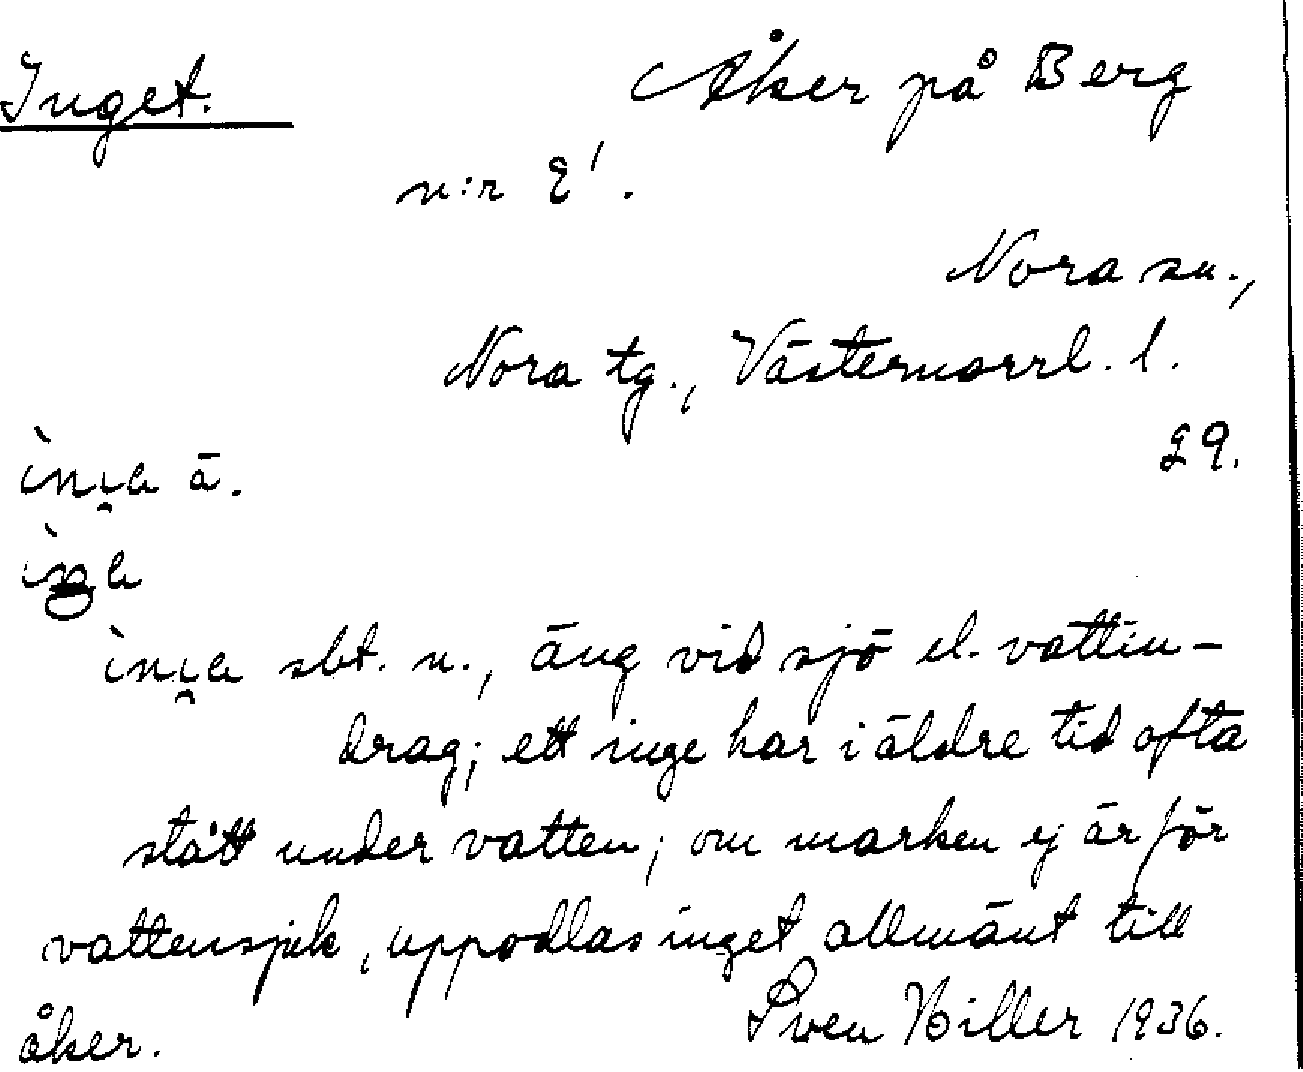 Inget. Åker på Berg
n:r 2'.
Nora sn.,
Nora tg., Västernorrl. l.
29.
ā.
sbt. n., äng vid sjö el. vatten-
drag; ett inge har i äldre tid ofta
stått under vatten; om marken ej är för
vattensjuk, uppodlas inget allmänt till
åker. Sven Hiller 1936.